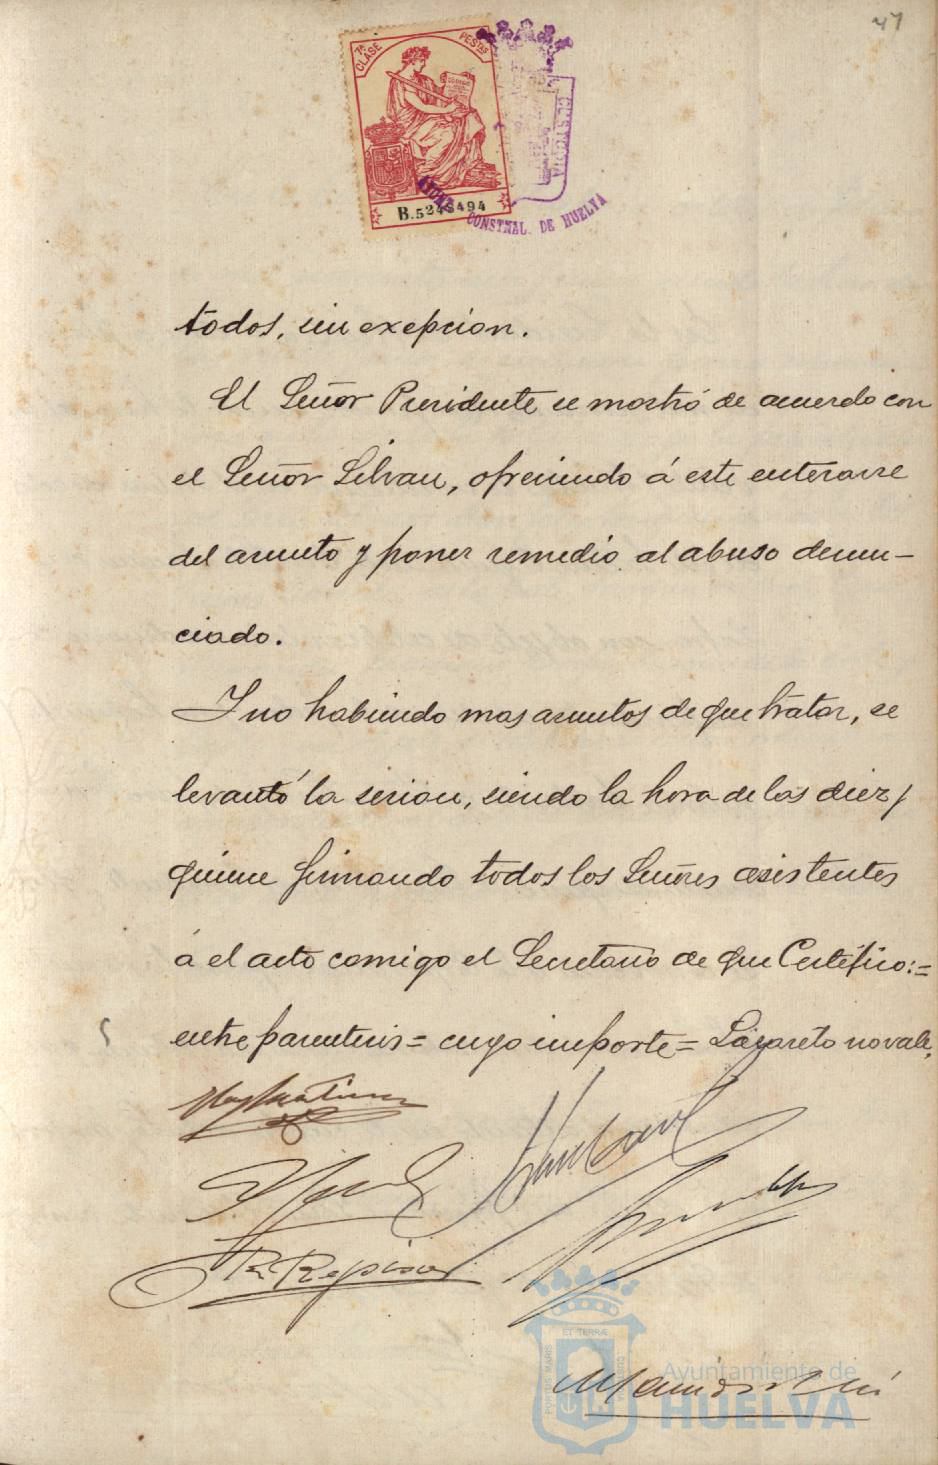 47
1ª CLASE PESTAS
B.5243494
CUSTODIA
AYUNT CONSTNAL. DE HUELVA
todos, sin exepcion.
El Señor Presidente se mostró de acuerdo con
el Señor Silvan, ofreciendo á este enterarse
del asunto y poner remedio al abuso denun-
ciado.
Y no habiendo mas asuntos de que tratar, se
levantó la sesion, siendo la hora de las diez y
quince firmando todos los Señores asistentes
á el acto comigo el Secretario de que Certifico:=
entre parentesis = cuyo importe = Lazareto no vale.
ET TERRÆ
PORTUS MARIS
CUSTODIA
Ayuntamiento de
HUELVA